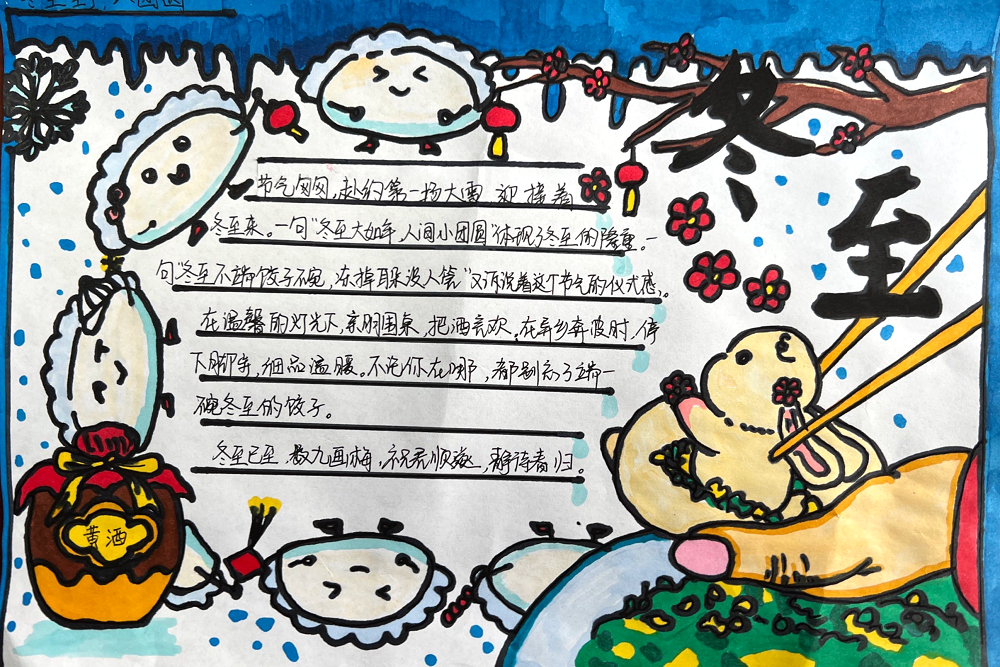 冬至
节气匆匆,赴约第一场大雪 迎接着
冬至来。一句“冬至大如年,人间小团圆”体现了冬至的隆重。一
句“冬至不端饺子碗,冻掉耳朵没人管”又诉说着这个节气的仪式感。
在温馨的灯光下,亲朋围桌,把酒言欢,在异乡奔波时,停
下脚步,细品温暖。不论你在哪,都别忘了端一
碗冬至的饺子。
冬至已至,数九画梅,祝君顺遂,静待春归。
黄酒